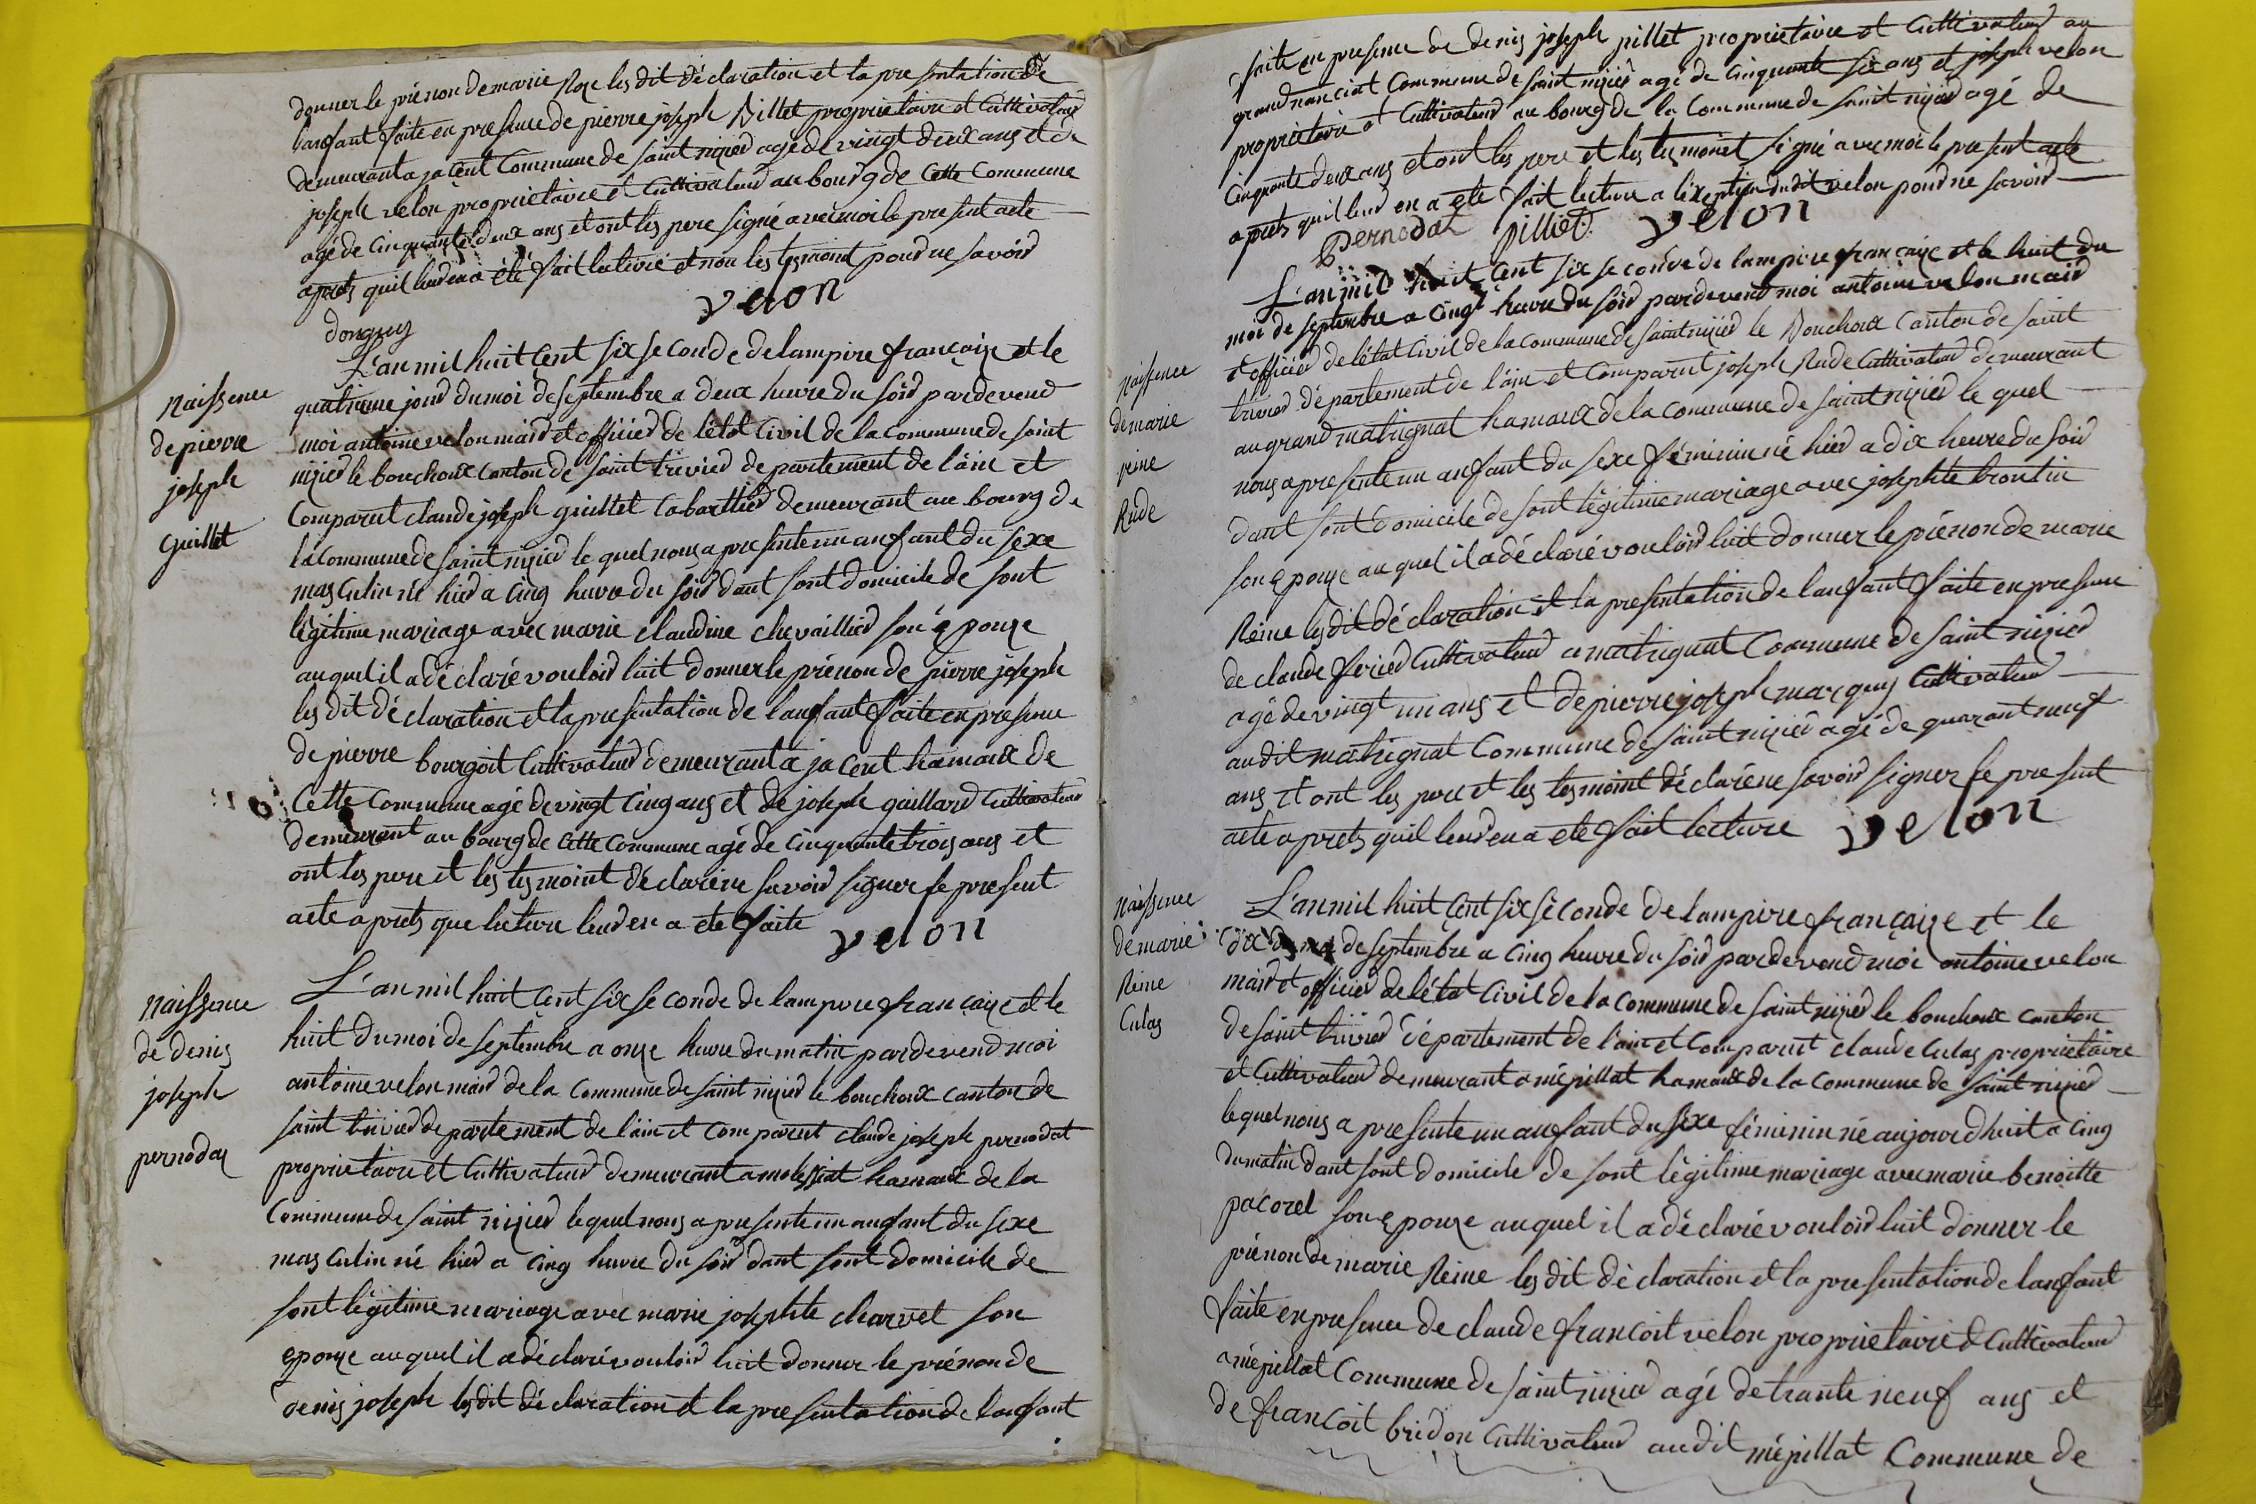 donner le prénon de marie Roze les dit déclaration et la presentation de
lanfant faite en presence de pierre joseph Billet proprietaire et Cultivateur
demeurant a jacent Commune de saint nizier agé de vingt deux ans et de
joseph velon proprietaire et Cultivateur au bourg de Cette Commune
agé de cinquante deux ans et ont les pere signé avec moi le present acte
aprets quil leur en a été fait lecture et non les tesmoint pour ne savoir
donguy velon
L'an mil huit Cent six seconde de lampire françaize et le
quatrieme jour du moi de septembre a deux heure du soir pardevend
moi antoine velon mair et officier de létat Civil de la commune de saint
nizier le bouchoux canton de saint trivier departement de l'ain et
Comparut claude joseph guillet Cabarttier demeurant au bourg de
la Commune de saint nizier le quel nous a presente un anfant du sexe
masculin né hier a cinq heure du soir dant sont domicile de sont
légitime mariage avec marie claudine chevaillier son épouze
auquel il a déclaré vouloir luit donner le prénon de pierre joseph
les dit déclaration et la presentation de lanfant faite en presence
de pierre bourgoit Cultivateur demeurant a jacent hamaux de
Cette Commune agé de vingt cinq ans et de joseph gaillard Cultivateur
demeurant au bourg de Cette Commune agé de cinquante trois ans et
ont les pere et les tesmoint déclaré ne savoir signer le present
acte aprets que lecture leur en a ete faite velon
Naissence
de pierre
joseph
Guillet
L'an mil huit Cent six seconde de lampire françaize et le
huit du moi de septembre a onze heure du matin pardevend moi
antoine velon mair de la Commune de saint nizier le bouchoux canton de
saint trivier departement de l'ain et comparut claude joseph pernodat
proprietaire et Cultivateur demeurant a molissiat hamaux de la
Commune de saint nizier le quel nous a presente un anfant du sexe
masculin né hier a cinq heure du soir dant sont domicile de
sont légitime mariage avec marie josephte charvet son
epouze auquel il a déclaré vouloir luit donner le prénon de
denis joseph les dit déclaration et la presentation de lanfant
Naissence
de denis
joseph
pernodaz
faite en presence de denis joseph pillet proprietaire et Cultivateur au
grand nanciat Commune de saint nizier agé de cinquante six ans et joseph velon
proprietaire et Cultivateur au bourg de la Commune de saint nizier agé de
cinquante deux ans et ont les pere et les tesmoint signé avec moi le present acte
aprets quil leur en a ete fait lecture a lexeption dudit velon pour ne savoir
Pernodaz pilliet velon
L'an mil huit Cent six seconde de lampire françaize et le huit du
moi de septembre a cinqt heure du soir pardevend moi antoine velon mair
et officier de létat Civil de la commune de saint nizier le Bouchoux Canton de saint
trivier département de l'ain et Comparut joseph Rude Cultivateur demeurant
au grand matrignat hamaux de la Commune de saint nizier le quel
nous a presente un anfant du sexe féminin né hier a dix heure du soir
dant sont domicile de sont légitime mariage avec josephte trontin
son epouze auquel il a déclaré vouloir luit donner le prénon de marie
Reine les dit déclaration et la presentation de lanfant faite en presence
de claude ferier Cultivateur a matrignat Commune de saint nizier
agé de vingt un ans et de pierre joseph marquis Cultivateur
audit matrignat Commune de saint nizier agé de quarant neuf
ans et ont les pere et les tesmoint déclaré ne savoir signer le present
acte aprets quil leur en a ete fait lecture velon
Naissence
de marie
reine
Rude
L'an mil huit Cent six séconde de lampire françaize et le
dix du moi de septembre a cinq heure du soir pardevend moi antoine velon
mair et officier de létat Civil de la Commune de saint nizier le bouchoux canton
de saint trivier département de l'ain et Comparut claude Culas proprietaire
et Cultivateur demeurant a mépillat hamaux de la Commune de saint nizier
lequel nous a presente un anfant du sexe féminin né aujourdhuit a cinq
du matin dant sont domicile de sont légitime mariage avec marie benoitte
pacorel son epouze auquel il a déclaré vouloir luit donner le
prénon de marie Reine les dit déclaration et la presentation de lanfant
faite en presence de claude francoit velon proprietaire et Cultivateur
a mépillat Commune de saint nizier agé de trante neuf ans et
de francoit bridon Cultivateur audit mépillat Commune de
Naissence
de marie
Reine
Culas